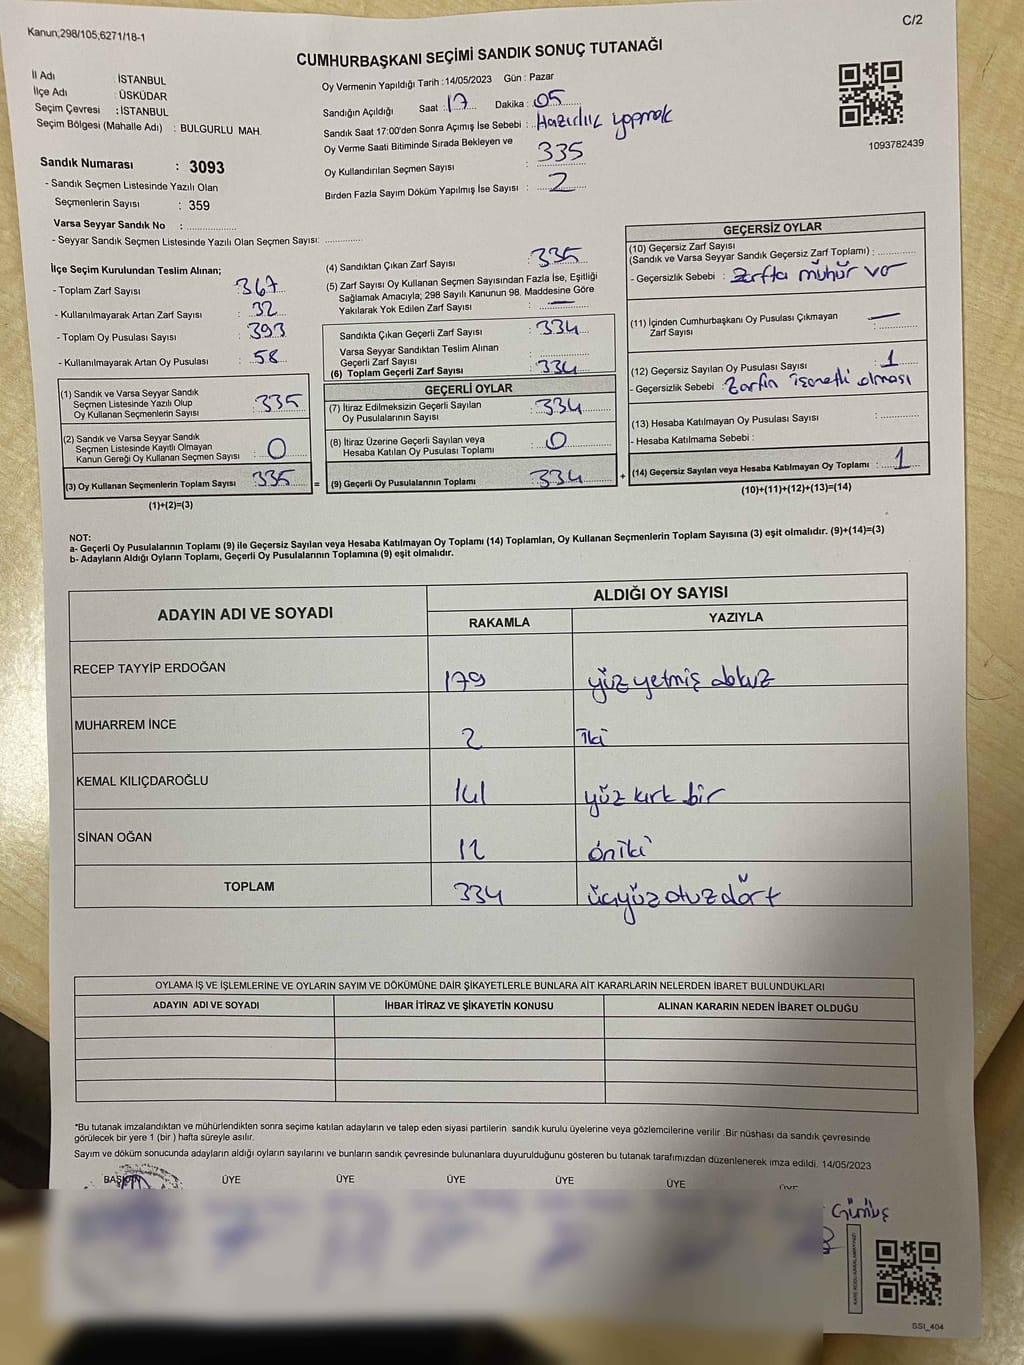 Kanun;298/105;6271/18-1
C/2
CUMHURBAŞKANI SEÇİMİ SANDIK SONUÇ TUTANAĞI
İl Adı : İSTANBUL
İlçe Adı : ÜSKÜDAR
Seçim Çevresi : İSTANBUL
Seçim Bölgesi (Mahalle Adı) : BULGURLU MAH.
Oy Vermenin Yapıldığı Tarih : 14/05/2023 Gün : Pazar
Sandığın Açıldığı Saat : 17 Dakika : 05
Sandık Saat 17:00'den Sonra Açımış İse Sebebi : Hazırlık yapmak
Oy Verme Saati Bitiminde Sırada Bekleyen ve
Oy Kullandırılan Seçmen Sayısı : 335
Birden Fazla Sayım Döküm Yapılmış İse Sayısı : 2
1093782439
Sandık Numarası : 3093
- Sandık Seçmen Listesinde Yazılı Olan
Seçmenlerin Sayısı : 359
Varsa Seyyar Sandık No :
- Seyyar Sandık Seçmen Listesinde Yazılı Olan Seçmen Sayısı:
İlçe Seçim Kurulundan Teslim Alınan;
- Toplam Zarf Sayısı : 367
- Kullanılmayarak Artan Zarf Sayısı : 32
- Toplam Oy Pusulası Sayısı : 393
- Kullanılmayarak Artan Oy Pusulası : 58
(1) Sandık ve Varsa Seyyar Sandık
Seçmen Listesinde Yazılı Olup
Oy Kullanan Seçmenlerin Sayısı : 335
(2) Sandık ve Varsa Seyyar Sandık
Seçmen Listesinde Kayıtlı Olmayan
Kanun Gereği Oy Kullanan Seçmen Sayısı : 0
(3) Oy Kullanan Seçmenlerin Toplam Sayısı : 335
(1)+(2)=(3)
(4) Sandıktan Çıkan Zarf Sayısı : 335
(5) Zarf Sayısı Oy Kullanan Seçmen Sayısından Fazla İse, Eşitliği
Sağlamak Amacıyla; 298 Sayılı Kanunun 98. Maddesine Göre
Yakılarak Yok Edilen Zarf Sayısı : —
Sandıkta Çıkan Geçerli Zarf Sayısı : 334
Varsa Seyyar Sandıktan Teslim Alınan
Geçerli Zarf Sayısı :
(6) Toplam Geçerli Zarf Sayısı : 334
GEÇERLİ OYLAR
(7) İtiraz Edilmeksizin Geçerli Sayılan
Oy Pusulalarının Sayısı : 334
(8) İtiraz Üzerine Geçerli Sayılan veya
Hesaba Katılan Oy Pusulası Toplamı : 0
= (9) Geçerli Oy Pusulalarının Toplamı : 334 +
GEÇERSİZ OYLAR
(10) Geçersiz Zarf Sayısı
(Sandık ve Varsa Seyyar Sandık Geçersiz Zarf Toplamı) :
- Geçersizlik Sebebi : Zarfta mühür var
(11) İçinden Cumhurbaşkanı Oy Pusulası Çıkmayan
Zarf Sayısı : —
(12) Geçersiz Sayılan Oy Pusulası Sayısı : 1
- Geçersizlik Sebebi : Zarfın işaretli olması
(13) Hesaba Katılmayan Oy Pusulası Sayısı :
- Hesaba Katılmama Sebebi :
(14) Geçersiz Sayılan veya Hesaba Katılmayan Oy Toplamı : 1
(10)+(11)+(12)+(13)=(14)
NOT:
a- Geçerli Oy Pusulalarının Toplamı (9) ile Geçersiz Sayılan veya Hesaba Katılmayan Oy Toplamı (14) Toplamları, Oy Kullanan Seçmenlerin Toplam Sayısına (3) eşit olmalıdır. (9)+(14)=(3)
b- Adayların Aldığı Oyların Toplamı, Geçerli Oy Pusulalarının Toplamına (9) eşit olmalıdır.
ADAYIN ADI VE SOYADI
ALDIĞI OY SAYISI
RAKAMLA YAZIYLA
RECEP TAYYİP ERDOĞAN 179 yüz yetmiş dokuz
MUHARREM İNCE 2 iki
KEMAL KILIÇDAROĞLU 141 yüz kırk bir
SİNAN OĞAN 12 oniki
TOPLAM 334 üçyüz otuz dört
OYLAMA İŞ VE İŞLEMLERİNE VE OYLARIN SAYIM VE DÖKÜMÜNE DAİR ŞİKAYETLERLE BUNLARA AİT KARARLARIN NELERDEN İBARET BULUNDUKLARI
ADAYIN ADI VE SOYADI İHBAR İTİRAZ VE ŞİKAYETİN KONUSU ALINAN KARARIN NEDEN İBARET OLDUĞU
*Bu tutanak imzalandıktan ve mühürlendikten sonra seçime katılan adayların ve talep eden siyasi partilerin sandık kurulu üyelerine veya gözlemcilerine verilir .Bir nüshası da sandık çevresinde
görülecek bir yere 1 (bir ) hafta süreyle asılır.
Sayım ve döküm sonucunda adayların aldığı oyların sayılarını ve bunların sandık çevresinde bulunanlara duyurulduğunu gösteren bu tutanak tarafımızdan düzenlenerek imza edildi. 14/05/2023
BAŞKAN ÜYE ÜYE ÜYE ÜYE ÜYE ÜYE
Gümüş
SSI_404